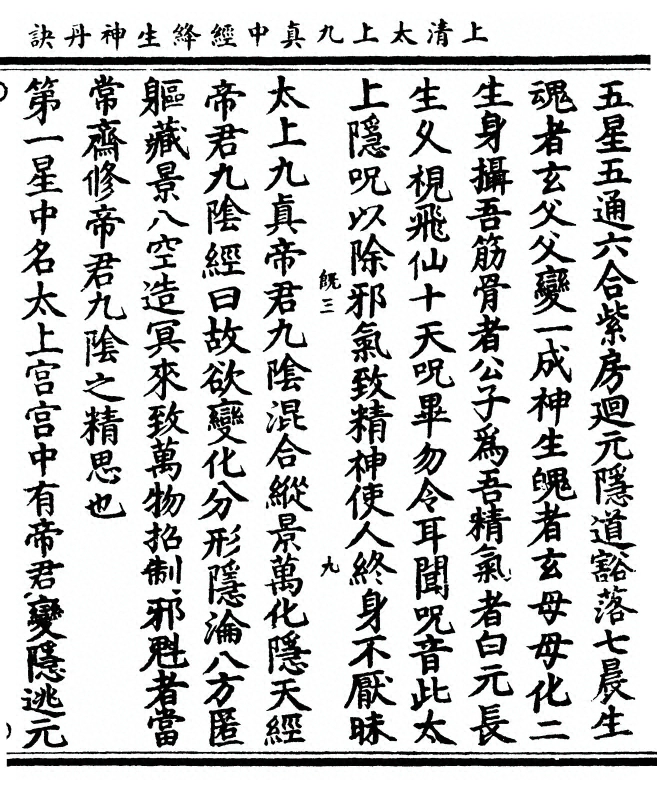 上清太上九真中經絳生神丹訣
五星五通六合紫房迴元隱道豁落七晨生
魂者玄父父變一成神生魄者玄母母化二
生身攝吾筋骨者公子爲吾精氣者白元長
生久視飛仙十天呪畢勿令耳聞呪音此太
上隱呪以除邪氣致精神使人終身不厭昧
旣三
九
太上九真帝君九陰混合縱景萬化隱天經
帝君九陰經曰故欲變化分形隱淪八方匿
軀藏景八空造冥來致萬物招制邪魁者當
常齋修帝君九陰之精思也
第一星中名太上宮宮中有帝君變隱逃元